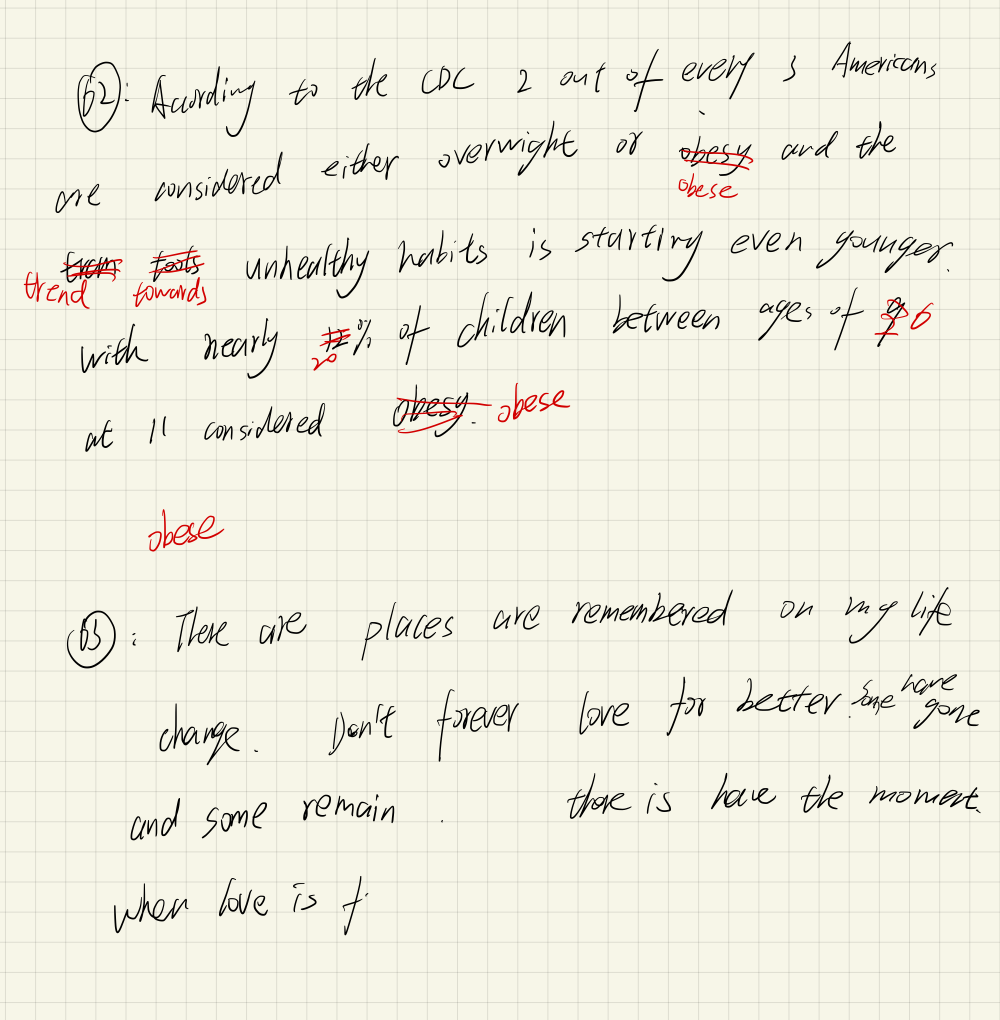 62: Acording to the CDC 2 out of every 3 Americans
are considered either overwight or obesy and the
obese
from toots unhealthy habits is starting even younger.
trend towards
with nearly 12% of children between ages of 9 6
20
at 11 considered obesy. obese
obese
63: There are places are remembered on my life
change. Don't forever love for better. Some have gone
and some remain. there is have the moment.
when love is f